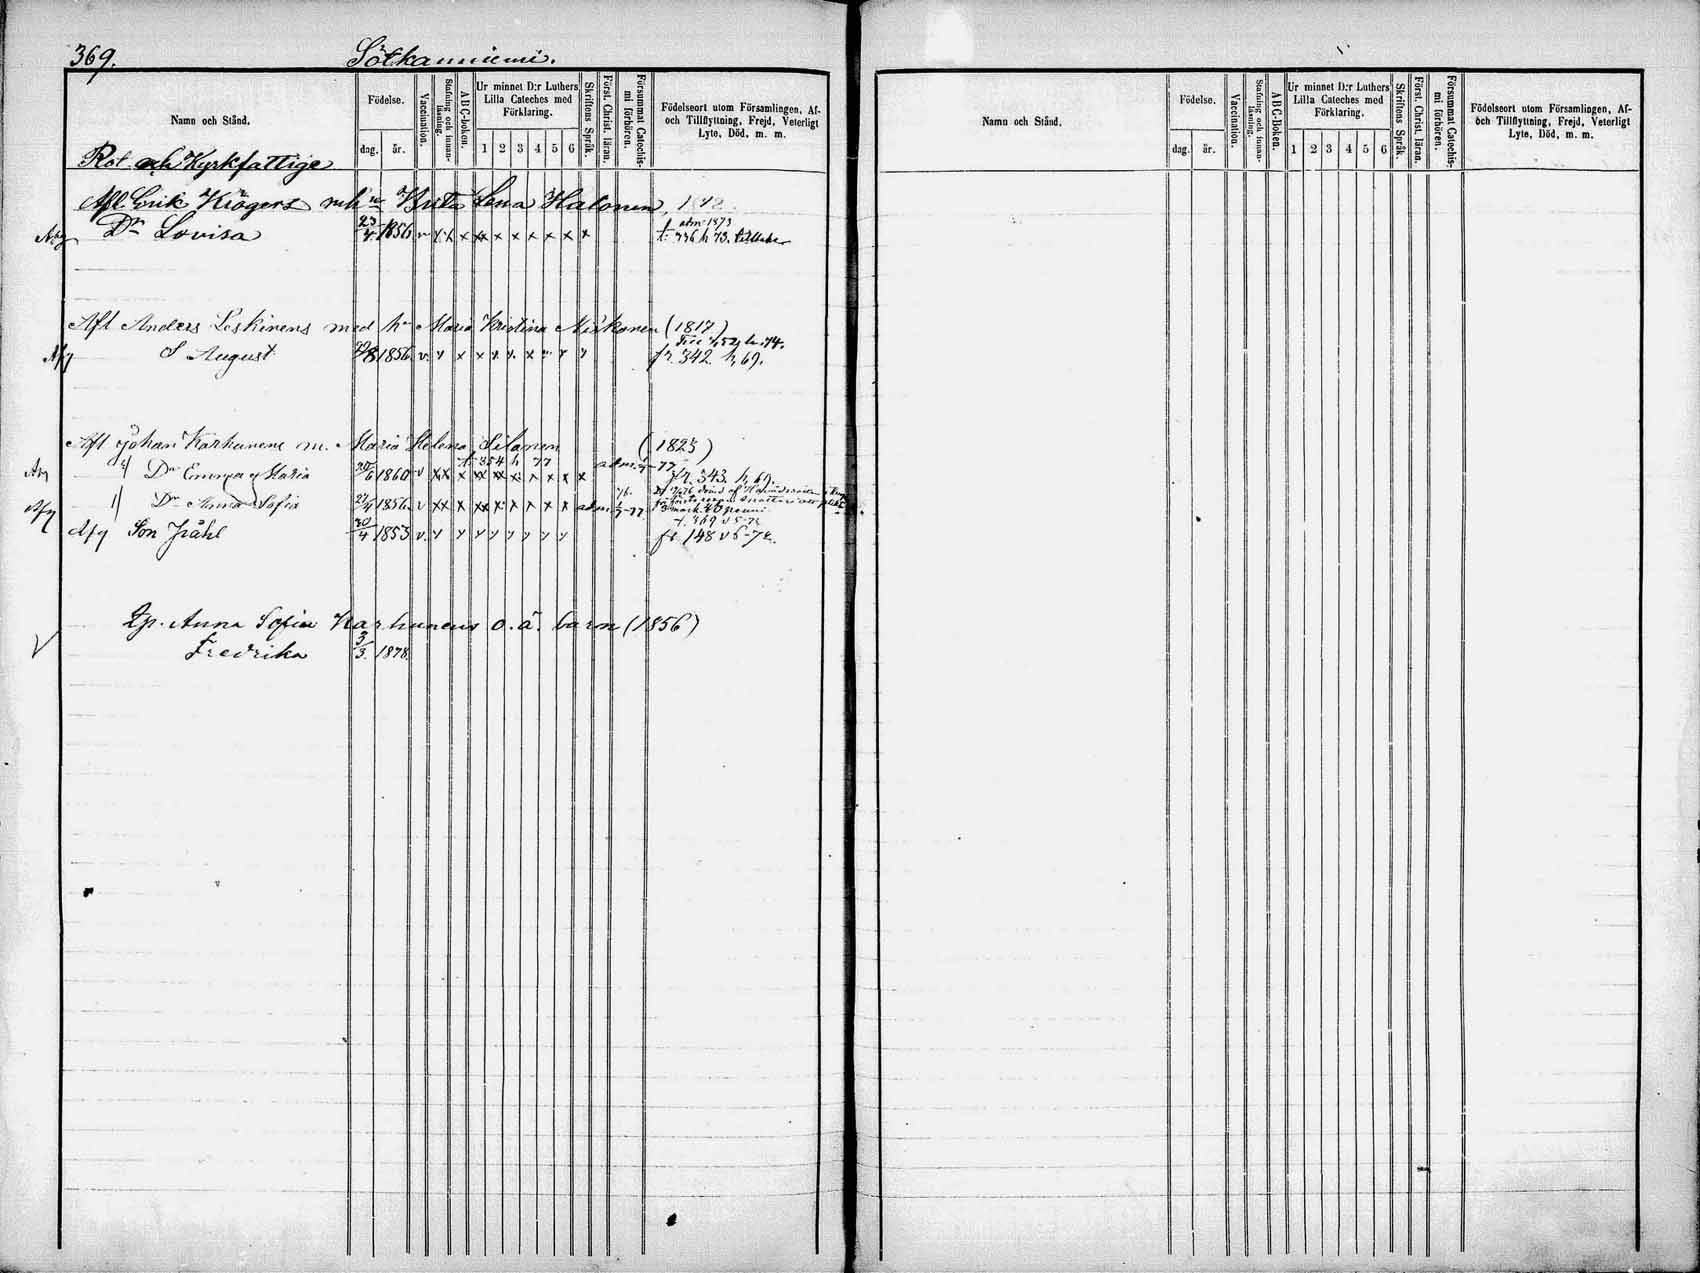 369.
Sotkanniemi.
Namn och Stånd.
Födelse.
dag.
år.
Vaccination.
Stafning och innan-
läsning.
ABC-boken.
Ur minnet D:r Luthers
Lilla Cateches med
Förklaring.
1 2 3 4 5 6
Skriftens Språk.
Först. Christ. läran.
Försummat Catechis-
mi förhören.
Födelseort utom Församlingen, Af-
och Tillflyttning, Frejd, Veterligt
Lyte, Död, m. m.
Rot och Kyrkfattige
Afl. Erik Krögers Brita Lena Halonen
Afg Dr Lovisa 23/4 1856 v x x x x x x x x x x adm. 1873
t. 336 h 73. tillbaka
Afl Anders Leskinens med h Maria Kristina Niskanen (1817)
Afg S August 1856 v fr. 342. h, 69.
Afl Johan Karhunens m. Maria Helena Silanen (1825)
t. 354 h 77 adm.
Dr Emma Maria 1860 v x x x x x x x x x x fr. 343. h, 69.
1) Dr Anna Sofia 27/4 1856 v x x x x x x x x x adm.
t. 369 v 5-78
Afg Son Påhl 30/4 1853 v fr. 148 v 6-72.
Qp. Anna Sofia Karhunens o. ä. barn (1856)
Fredrika 3/3 1878.
Namn och Stånd.
Födelse.
dag.
år.
Vaccination.
Stafning och innan-
läsning.
ABC-Boken.
Ur minnet D:r Luthers
Lilla Cateches med
Förklaring.
1 2 3 4 5 6
Skriftens Språk.
Först. Christ. läran.
Försummat Catechis-
mi förhören.
Födelseort utom Församlingen, Af-
och Tillflyttning, Frejd, Veterligt
Lyte, Död, m. m.